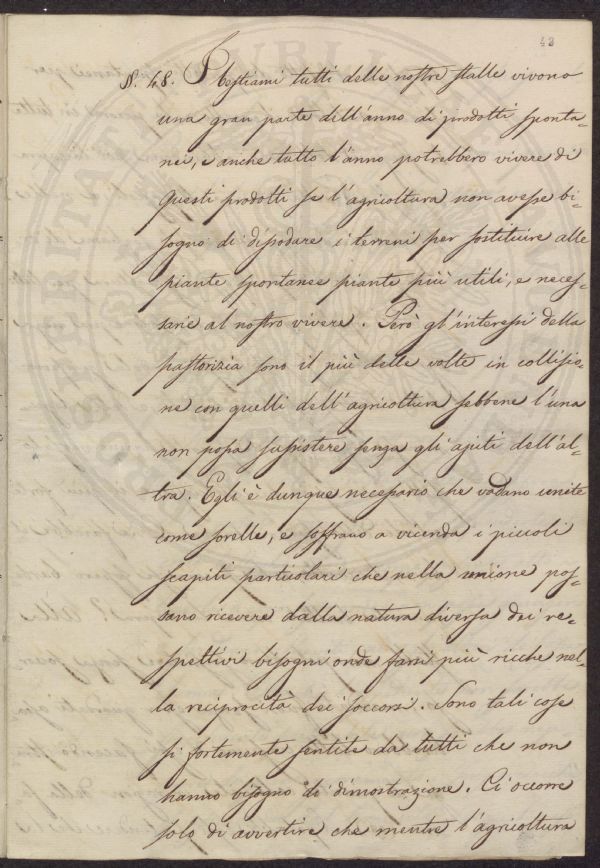 43
N. 48. I bestiami tutti delle nostre stalle vivono
una gran parte dell'anno di prodotti sponta-
nei, e anche tutto l'anno potrebbero vivere di
questi prodotti se l'agricoltura non avesse bi-
sogno di dissodare i terreni per sostituire alle
piante spontanee piante più utili, e neces-
sarie al nostro vivere. Però gl'interessi della
pastorizia sono il più delle volte in collisio-
ne con quelli dell'agricoltura sebbene l'una
non possa sussistere senza gli ajuti dell'al-
tra. Egli è dunque necessario che vadano unite
come sorelle, e soffrano a vicenda i piccoli
scapiti particolari che nella unione pos-
sano ricevere dalla natura diversa dei re-
spettivi bisogni onde farsi più ricche nel-
la reciprocità dei soccorsi. Sono tali cose
sì fortemente sentite da tutti che non
hanno bisogno di dimostrazione. Ci occorre
solo di avvertire che mentre l'agricoltura